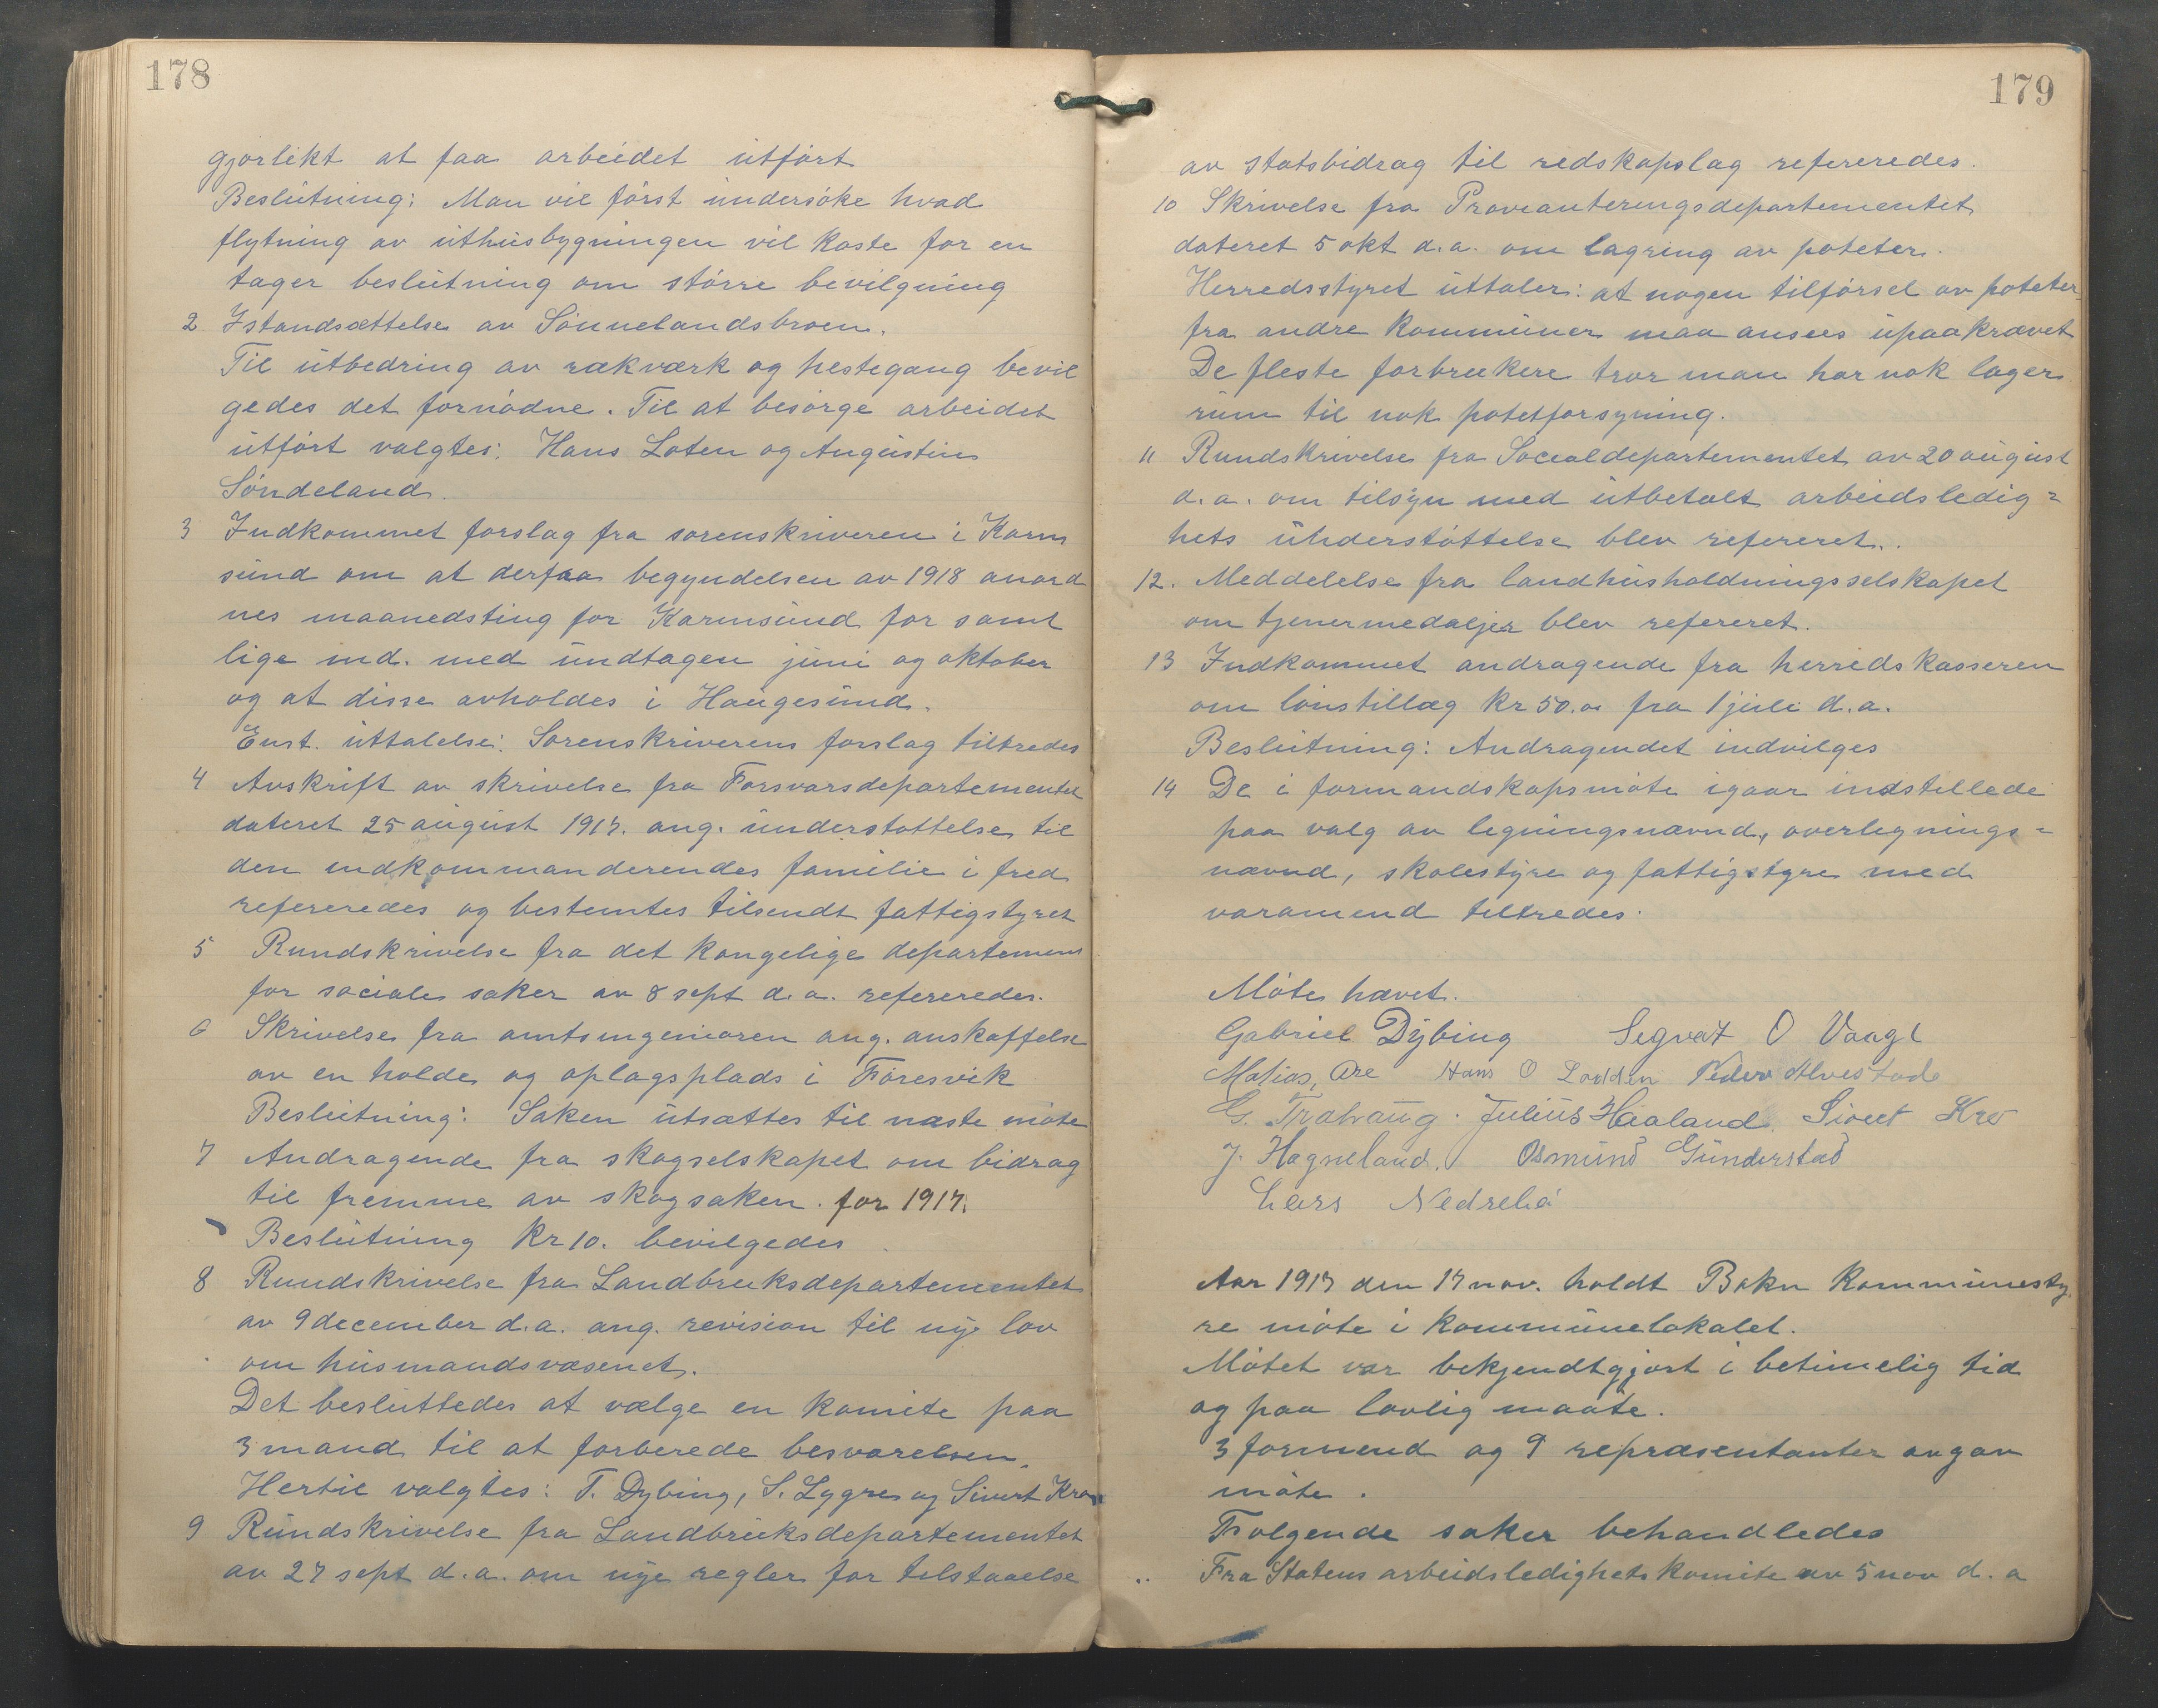 178
gjørlikt at faa arbeidet utført
Beslutning: Man vil først undersøke hvad
flytning av uthusbygningen vil koste før en
tager beslutning om større bevilgning
2 Istandsættelse av Sønnelandsbroen.
Til utbedring av rækværk og hestegang bevil
gedes det fornødne. Til at besørge arbeidet
utført valgtes: Hans Loten og Augustin
Søndeland.
3 Indkommet forslag fra sorenskriveren i Karm
sund om at der fra begyndelsen av 1918 anord
nes maanedsting for Karmsund for samt
lige md. med undtagen juni og oktober
og at disse avholdes i Haugesund.
Enst. uttalelse: Sorenskriverens forslag tiltredes
4 Avskrift av skrivelse fra Forsvarsdepartementet
dateret 25 august 1917. ang. understøttelse til
den indkommanderendes familie i fred
refereredes og bestemtes tilsendt fattigstyret
5 Rundskrivelse fra det kongelige departement
for sociale saker av 8 sept d.a. refereredes.
6 Skrivelse fra amtsingeniøren ang. anskaffelse
av en holde og oplagsplads i Føresvik
Beslutning: Saken utsættes til næste møte
7 Andragende fra skogselskapet om bidrag
til fremme av skogsaken. for 1917.
Beslutning Kr 10. bevilgedes
8 Rundskrivelse fra Landbruksdepartementet
av 9 december d.a. ang. revision til nye lov
om husmandsvæsenet.
Det besluttedes at vælge en komite paa
3 mand til at forberede besvarelsen.
Hertil valgtes: T. Dybing, S. Lygre og Sivert Kro
9 Rundskrivelse fra Landbruksdepartementet
av 27 sept d.a. om nye regler for tilstaaelse
179
av statsbidrag til redskapslag refereredes.
10 Skrivelse fra Provianteringsdepartementet
dateret 5 okt d.a. om lagring av poteter.
Herredsstyret uttaler: at nogen tilførsel av poteter
fra andre kommuner maa ansees upaakrævet
De fleste forbrukere tror man har nok lager
rum til nok potetforsyning.
11 Rundskrivelse fra Socialdepartementet av 20 august
d.a. om tilsyn med utbetalt arbeidsledig=
hets understøttelse blev referert.
12. Meddelelse fra landhusholdningsselskapet
om tjenermedaljer blev referert.
13 Indkommet andragende fra herredskasseren
om lønstillæg kr 50.00 fra 1 juli d.a.
Beslutning: Andragendet indvilges
14 De i formandskapsmøte igaar indstillede
paa valg av ligningsnævnd, overlignings=
nævnd, skolestyre og fattigstyre med
varamend tiltredes.
Møte hævet.
Gabriel Dybing Segvat O Vaage
Matias Are Hans O Lodden Peder Alvestad
G. Trohaug. Julius Haaland. Sivert Kro
J. Hogneland. Osmund Gunderstad
Lars Nedrebø
Aar 1917 den 17 nov. holdt Bokn kommunesty
re møte i kommunelokalet.
Møtet var bekjendtgjort i betimelig tid
og paa lovlig maate.
3 formend og 9 repræsentanter avgav
møte.
Følgende saker behandledes
Fra Statens arbeidsledighets komite av 5 nov d.a